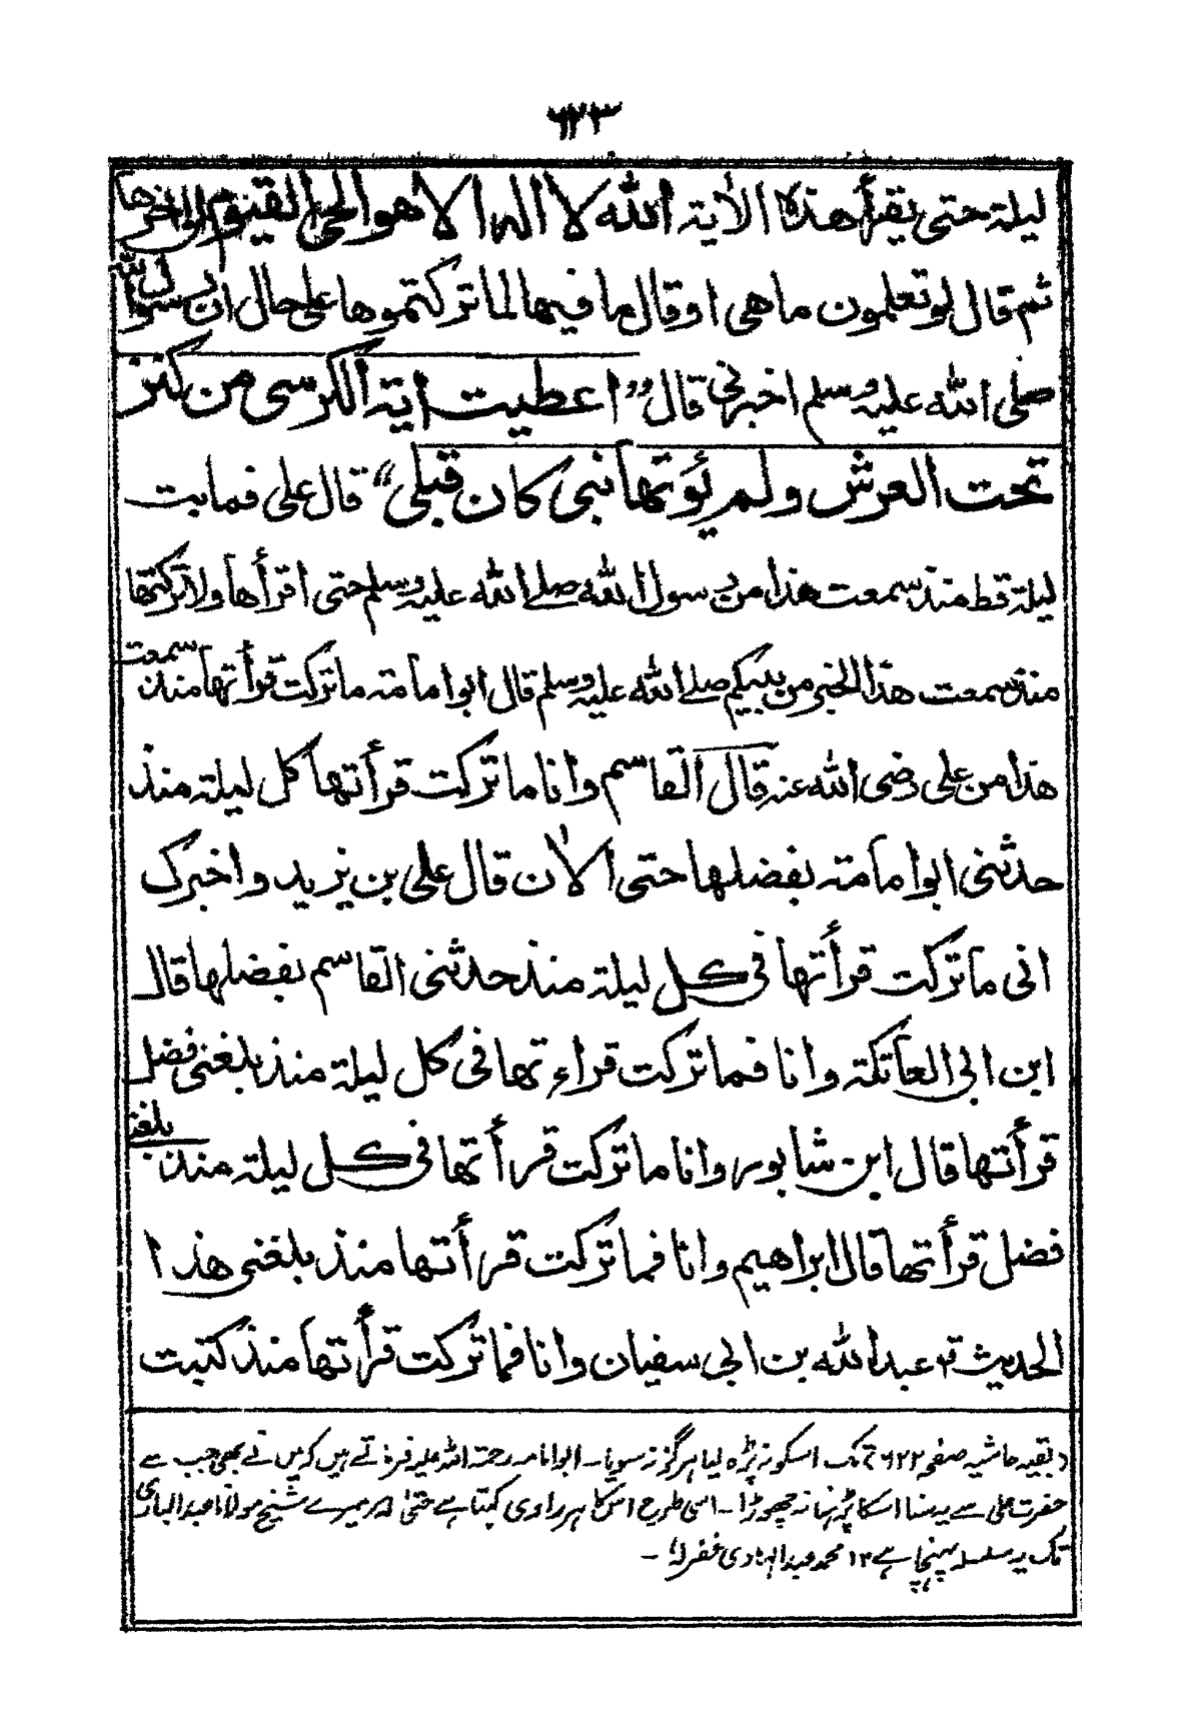 ٦٢٣
ليلة حتى يقرأ هذه الاية الله لا اله الا هو الحى القيوم الى اخرها
ثم قال لو تعلمون ما هى او قال ما فيها لما تركتموها على حال ان رسول الله
صلى الله عليه وسلم اخبرنى قال ”اعطيت اية الكرسى من كنز
تحت العرش ولم يُؤتها نبى كان قبلى“ قال على فما بت
ليلة قط منذ سمعت هذا من رسول الله صلے الله عليه وسلم حتى اقرأها ولا تركتها
منذ سمعت هذا الخبر من نبيكم صلے الله عليه وسلم قال ابو امامة ما تركت قرأتها منذ سمعت
هذا من على رضى الله عنه قال القاسم وانا ما تركت قرأتها كل ليلة منذ
حدثنى ابو امامة بفضلها حتى الان قال على بن يزيد واخبرك
انى ما تركت قرأتها فى كل ليلة منذ حدثنى القاسم بفضلها قال
ابن ابى العاتكة وانا فما تركت قراءتها فى كل ليلة منذ بلغنى فضل
قرأتها قال ابن شابور وانا ما تركت قرأتها فى كل ليلة منذ بلغنى
فضل قرأتها قال ابراهيم وانا فما تركت قرأتها منذ بلغنى هذا
الحديث عبد الله بن ابى سفيان وانا فما تركت قرأتها منذ كتبت
(بقیہ حاشیہ صفحہ ٦٢٢) تک اسکو نہ پڑھ لیا ہرگز نہ سویا۔ ابوامامہ رحمۃ اللہ علیہ فرماتے ہیں کہ میں نے بھی جب سے
حضرت علی سے یہ سنا اسکا پڑھنا نہ چھوڑا۔ اسی طرح اس کا ہر راوی کہتا ہے حتیٰ کہ میرے شیخ مولانا عبدالباری
تک یہ سلسلہ پہنچا ہے ١٢ محمد عبدالہادی غفرلہٗ۔